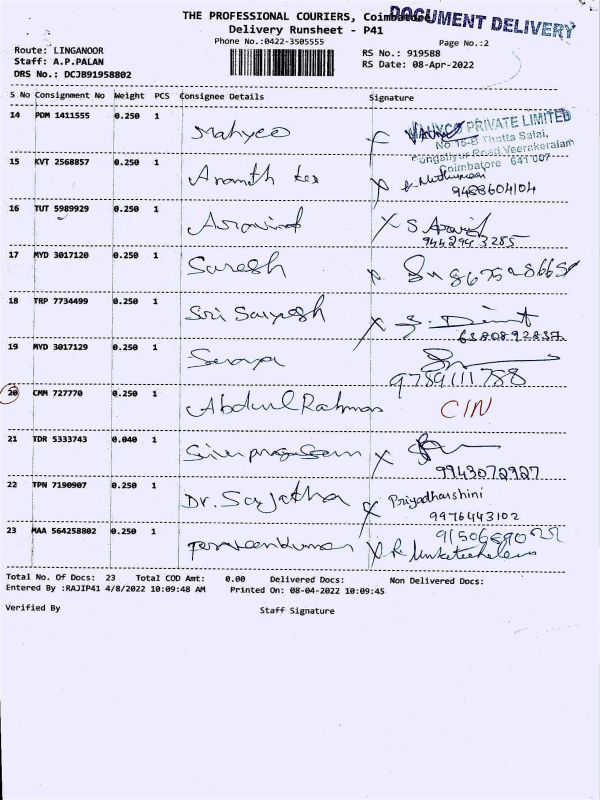 THE PROFESSIONAL COURIERS, Coimbatore
DOCUMENT DELIVERY
Delivery Runsheet - P41
Phone No.:0422-3505555
Page No.:2
Route: LINGANOOR
RS No.: 919588
Staff: A.P.PALAN
RS Date: 08-Apr-2022
DRS No.: DCJB91958802
S No Consignment No Weight PCS Consignee Details Signature
14 PDM 1411555 0.250 1 Mahyco
MAHYCO PRIVATE LIMITED
No 15-B Thotta Salai,
Pongaliyur Road Veerakeralam
Coimbatore 641 007
15 KVT 2568857 0.250 1
9488604104
16 TUT 5989929 0.250 1 Aravind X S Aravind
9442943285
17 MYD 3017120 0.250 1 Suresh
18 TRP 7734499 0.250 1 Sri Saiyogh X
6380892837
19 MYD 3017129 0.250 1
9789111788
20 CMM 727770 0.250 1 Abdul Rahman CIN
21 TDR 5333743 0.040 1 X
9943072927
22 TPN 7190907 0.250 1 Dr. Sujatha X Priyadharshini
9976443102
23 MAA 564258802 0.250 1 Parveenkumar X
Total No. Of Docs: 23 Total COD Amt: 0.00 Delivered Docs: Non Delivered Docs:
Entered By :RAJIP41 4/8/2022 10:09:48 AM Printed On: 08-04-2022 10:09:45
Verified By Staff Signature